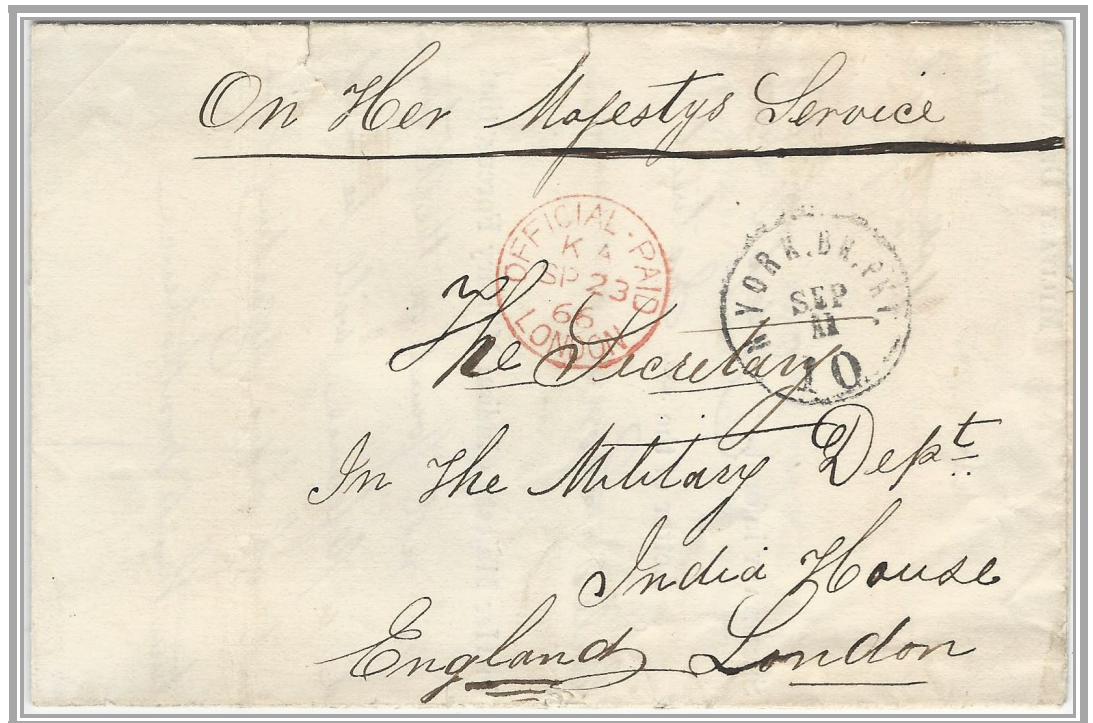 On Her Majestys Service
OFFICIAL · PAID
K A
SP 23
66
LONDON
N YORK. BR. PKT.
SEP
11
10
The Secretary
In the Military Dept
India House
England London